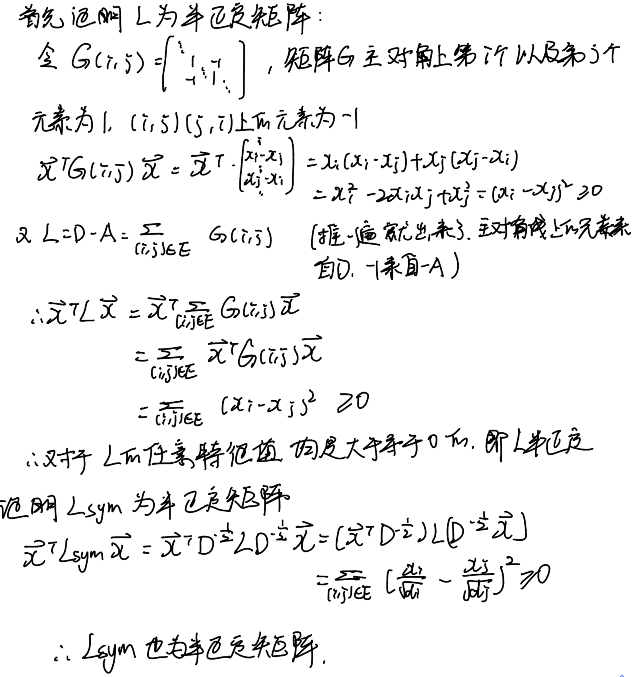 首先证明 L为半正定矩阵:
令 G(i,j) = [1 -1 -1 1], 矩阵G主对角上第i个以及第j个
元素为1, (i,j)(j,i)上的元素为-1
x⃗ᵀG(i,j)x⃗ = x⃗ᵀ·[xi-xj xj-xi] = xi(xi-xj)+xj(xj-xi)
= xi²-2xixj+xj² = (xi-xj)² ≥0
又 L=D-A= Σ(i,j)∈E G(i,j) (推一遍就出来了. 主对角线上的元素来
自D. -1来自-A)
∴x⃗ᵀLx⃗ = x⃗ᵀ Σ(i,j)∈E G(i,j)x⃗
= Σ(i,j)∈E x⃗ᵀG(i,j)x⃗
= Σ(i,j)∈E (xi-xj)² ≥0
∴对于L的任意特征值 均是大于等于0的. 即L半正定
证明 Lsym 为半正定矩阵
x⃗ᵀLsym x⃗ = x⃗ᵀD^{-1/2}LD^{-1/2}x⃗ = (x⃗ᵀD^{-1/2})L(D^{-1/2}x⃗)
= Σ(i,j)∈E (xi/√di - xj/√dj)² ≥0
∴ Lsym也为半正定矩阵.